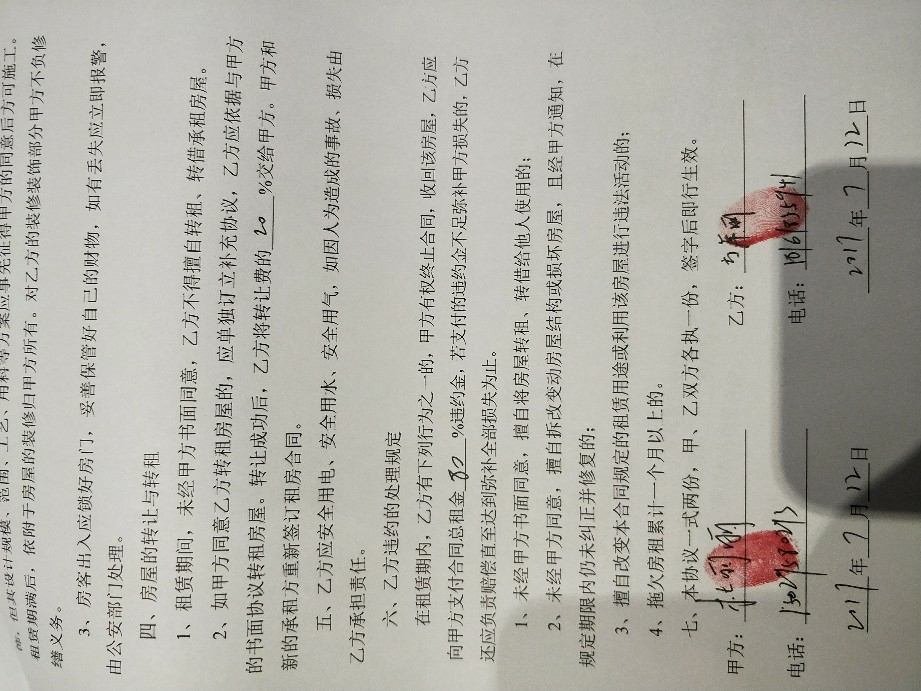 但其设计规模、范围、工艺、用料等方案应事先征得甲方的同意后方可施工。
租赁期满后，依附于房屋的装修归甲方所有。对乙方的装修装饰部分甲方不负修
缮义务。
3、房客出入应锁好房门，妥善保管好自己的财物，如有丢失应立即报警，
由公安部门处理。
四、房屋的转让与转租
1、租赁期间，未经甲方书面同意，乙方不得擅自转租、转借承租房屋。
2、如甲方同意乙方转租房屋的，应单独订立补充协议，乙方应依据与甲方
的书面协议转租房屋。转让成功后，乙方将转让费的 20 %交给甲方。甲方和
新的承租方重新签订租房合同。
五、乙方应安全用电、安全用水、安全用气，如因人为造成的事故、损失由
乙方承担责任。
六、乙方违约的处理规定
在租赁期内，乙方有下列行为之一的，甲方有权终止合同，收回该房屋，乙方应
向甲方支付合同总租金 %违约金，若支付的违约金不足弥补甲方损失的，乙方
还应负责赔偿直至达到弥补全部损失为止。
1、未经甲方书面同意，擅自将房屋转租、转借给他人使用的；
2、未经甲方同意，擅自拆改变动房屋结构或损坏房屋，且经甲方通知，在
规定期限内仍未纠正并修复的；
3、擅自改变本合同规定的租赁用途或利用该房屋进行违法活动的；
4、拖欠房租累计一个月以上的。
七、本协议一式两份，甲、乙双方各执一份，签字后即行生效。
甲方： 乙方：
电话： 电话：
2017 年 7 月 12 日 2017 年 7 月 12 日